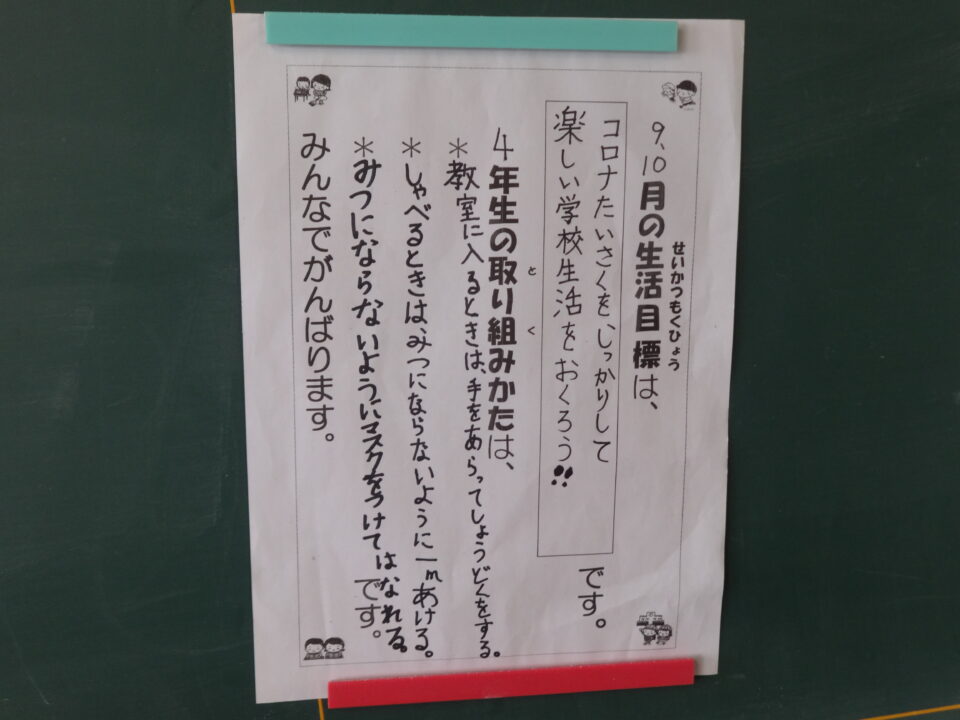 9、10月の生活目標は、
せいかつもくひょう
コロナたいさくを、しっかりして
楽しい学校生活をおくろう!!
です。
4年生の取り組みかたは、
と く
＊教室に入るときは、手をあらってしょうどくをする。
＊しゃべるときは、みつにならないように一mあける。
＊みつにならないようにマスクをつけてはなれる。
です。
みんなでがんばります。